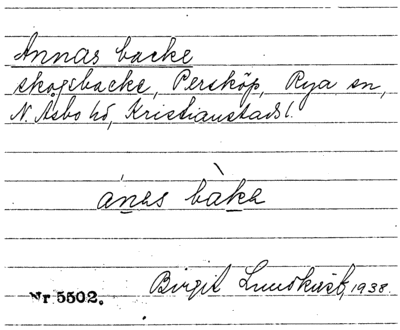 Annas backe
skogsbacke, Perskôp, Rya sn,
N. Åsbo hd, Kristianstads l.
ánas bàka
Birgit Lundkvist, 1938.
Nr 5502.